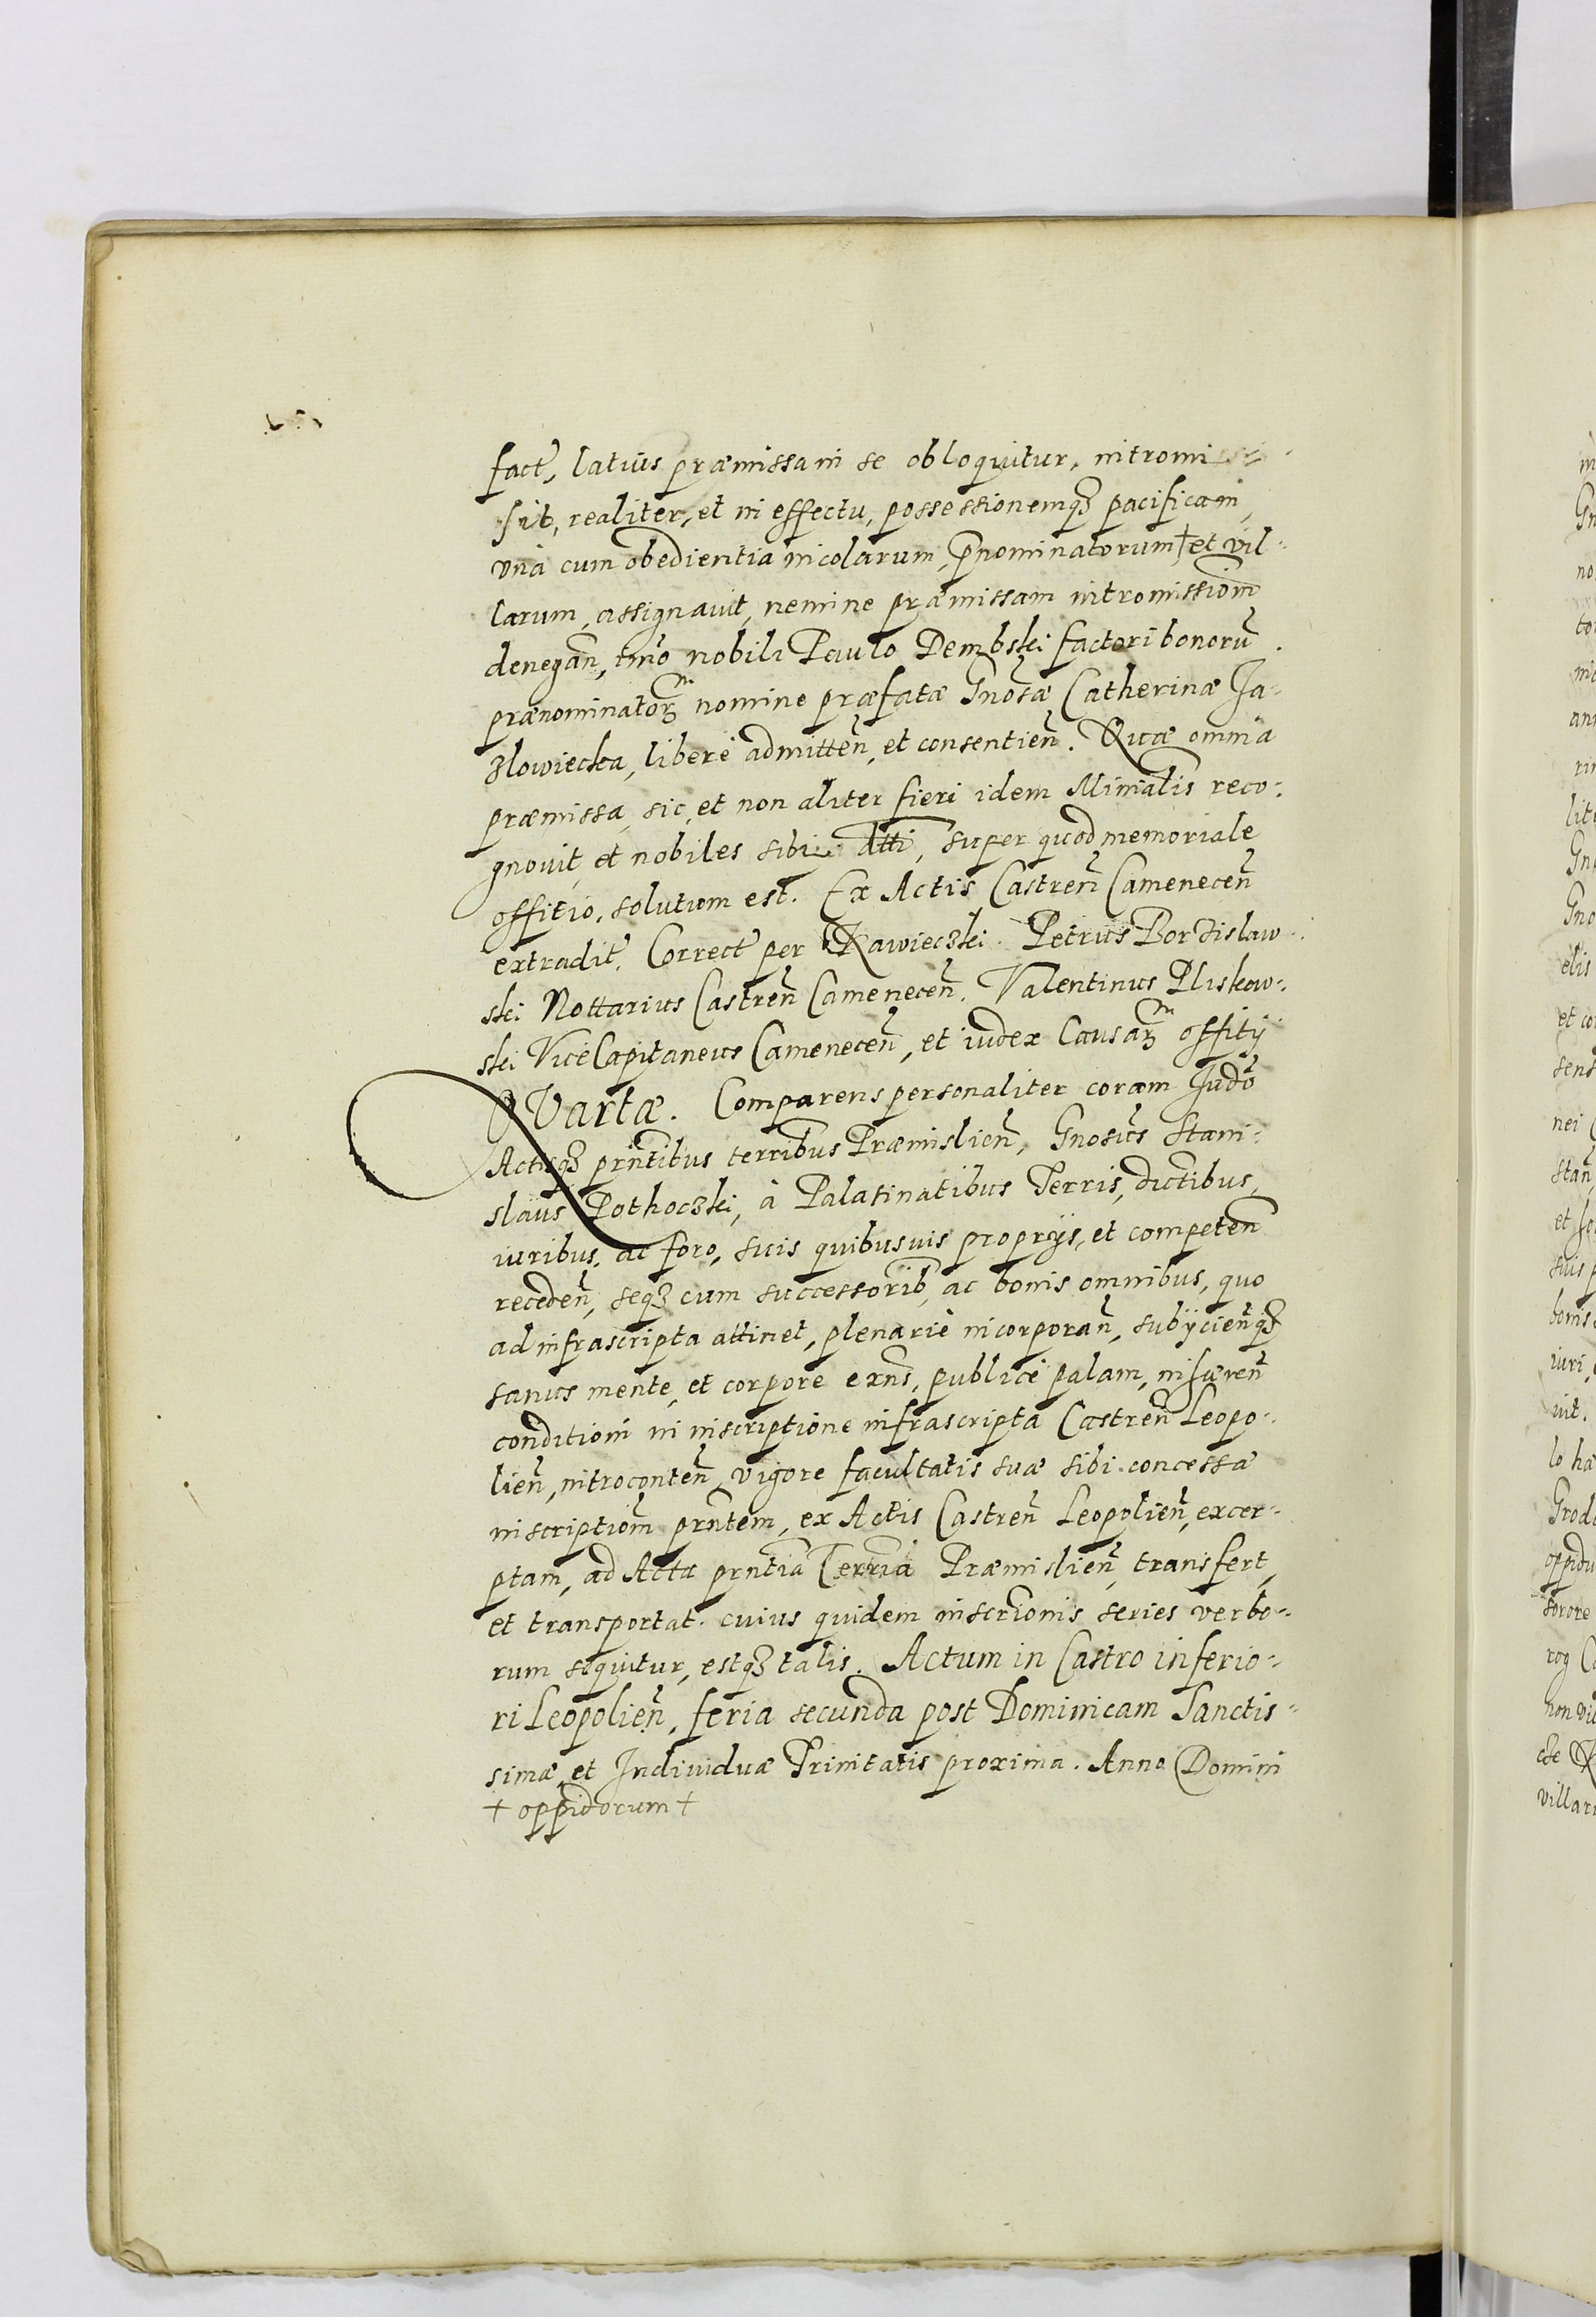 fact̃, latius præmissa in se obloquitur, intromi⸗
sit, realiter, et in effectu, possessionemqꝫ pacificam,
vna cum obedientia incolarum, p̃nominatorum † et vil⸗
larum, assignauit, nemine præmissam intromissiom̃
denegañ, im̃o nobili Paulo Dembski factori bonorũ
prænominatorꝫ nomine præfatæ Gnosæ Catherinæ Ja⸗
zlowiecka, liberè admitteñ, et consentieñ. Quæ omnia
præmissa, sic, et non aliter fieri idem Minialis̃ reco⸗
gnouit, et nobiles sibi att̃i, super quod memoriale
offitio, solutum est. Ex Actis Castreñ Cameneceñ
extradit̃. Correct̃ per Rawieczki. Petrus Borzislaw⸗
ski Nottarius Castreñ Cameneceñ. Valentinus Pliskow⸗
ski ViceCapitaneus Cameneceñ, et iudex Causarꝫ offitÿ
QVartæ. Comparens personaliter coram Judõ
Actisqꝫ prñtibus terribus Præmislieñ, Gnosus Stani⸗
slaus Pothoczki, à Palatinatibus Terris, dictibus,
iuribus, ac foro, suis quibusuis proprÿs, et competeñ
recedeñ, seqꝫ cum successorib̃, ac bonis omnibus, quo
ad infrascripta attinet, plenariè incorporañ, subÿcieñqꝫ
sanus mente, et corpore exñs, publicè palam, inhæreñ
conditioni in inscriptione infrascripta Castreñ Leopo⸗
lieñ, introconteñ, vigore facultatis suæ sibi concessæ
inscriptiom̃ prñtem, ex Actis Castreñ Leopolieñ, excer⸗
ptam, ad Acta prñtia Terria Præmislieñ, transfert,
et transportat. cuius quidem inscrionis̃ series verbo⸗
rum sequitur, estqꝫ talis. Actum in Castro inferio⸗
ri Leopolieñ, feria secunda post Dominicam Sanctis⸗
simæ, et Indiuiduæ Trinitatis proxima. Anno Domini
† oppidorum †